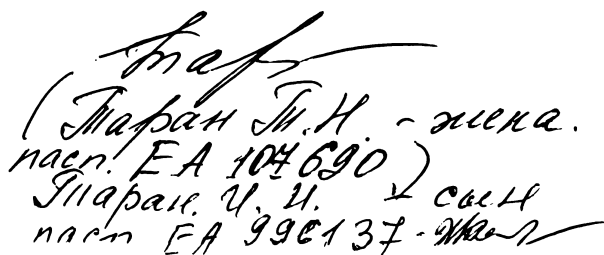 (Таран Т.Н. - жена.
пасп. ЕА 107690)
Таран. И. И. - сын
пасп ЕА 996137 -